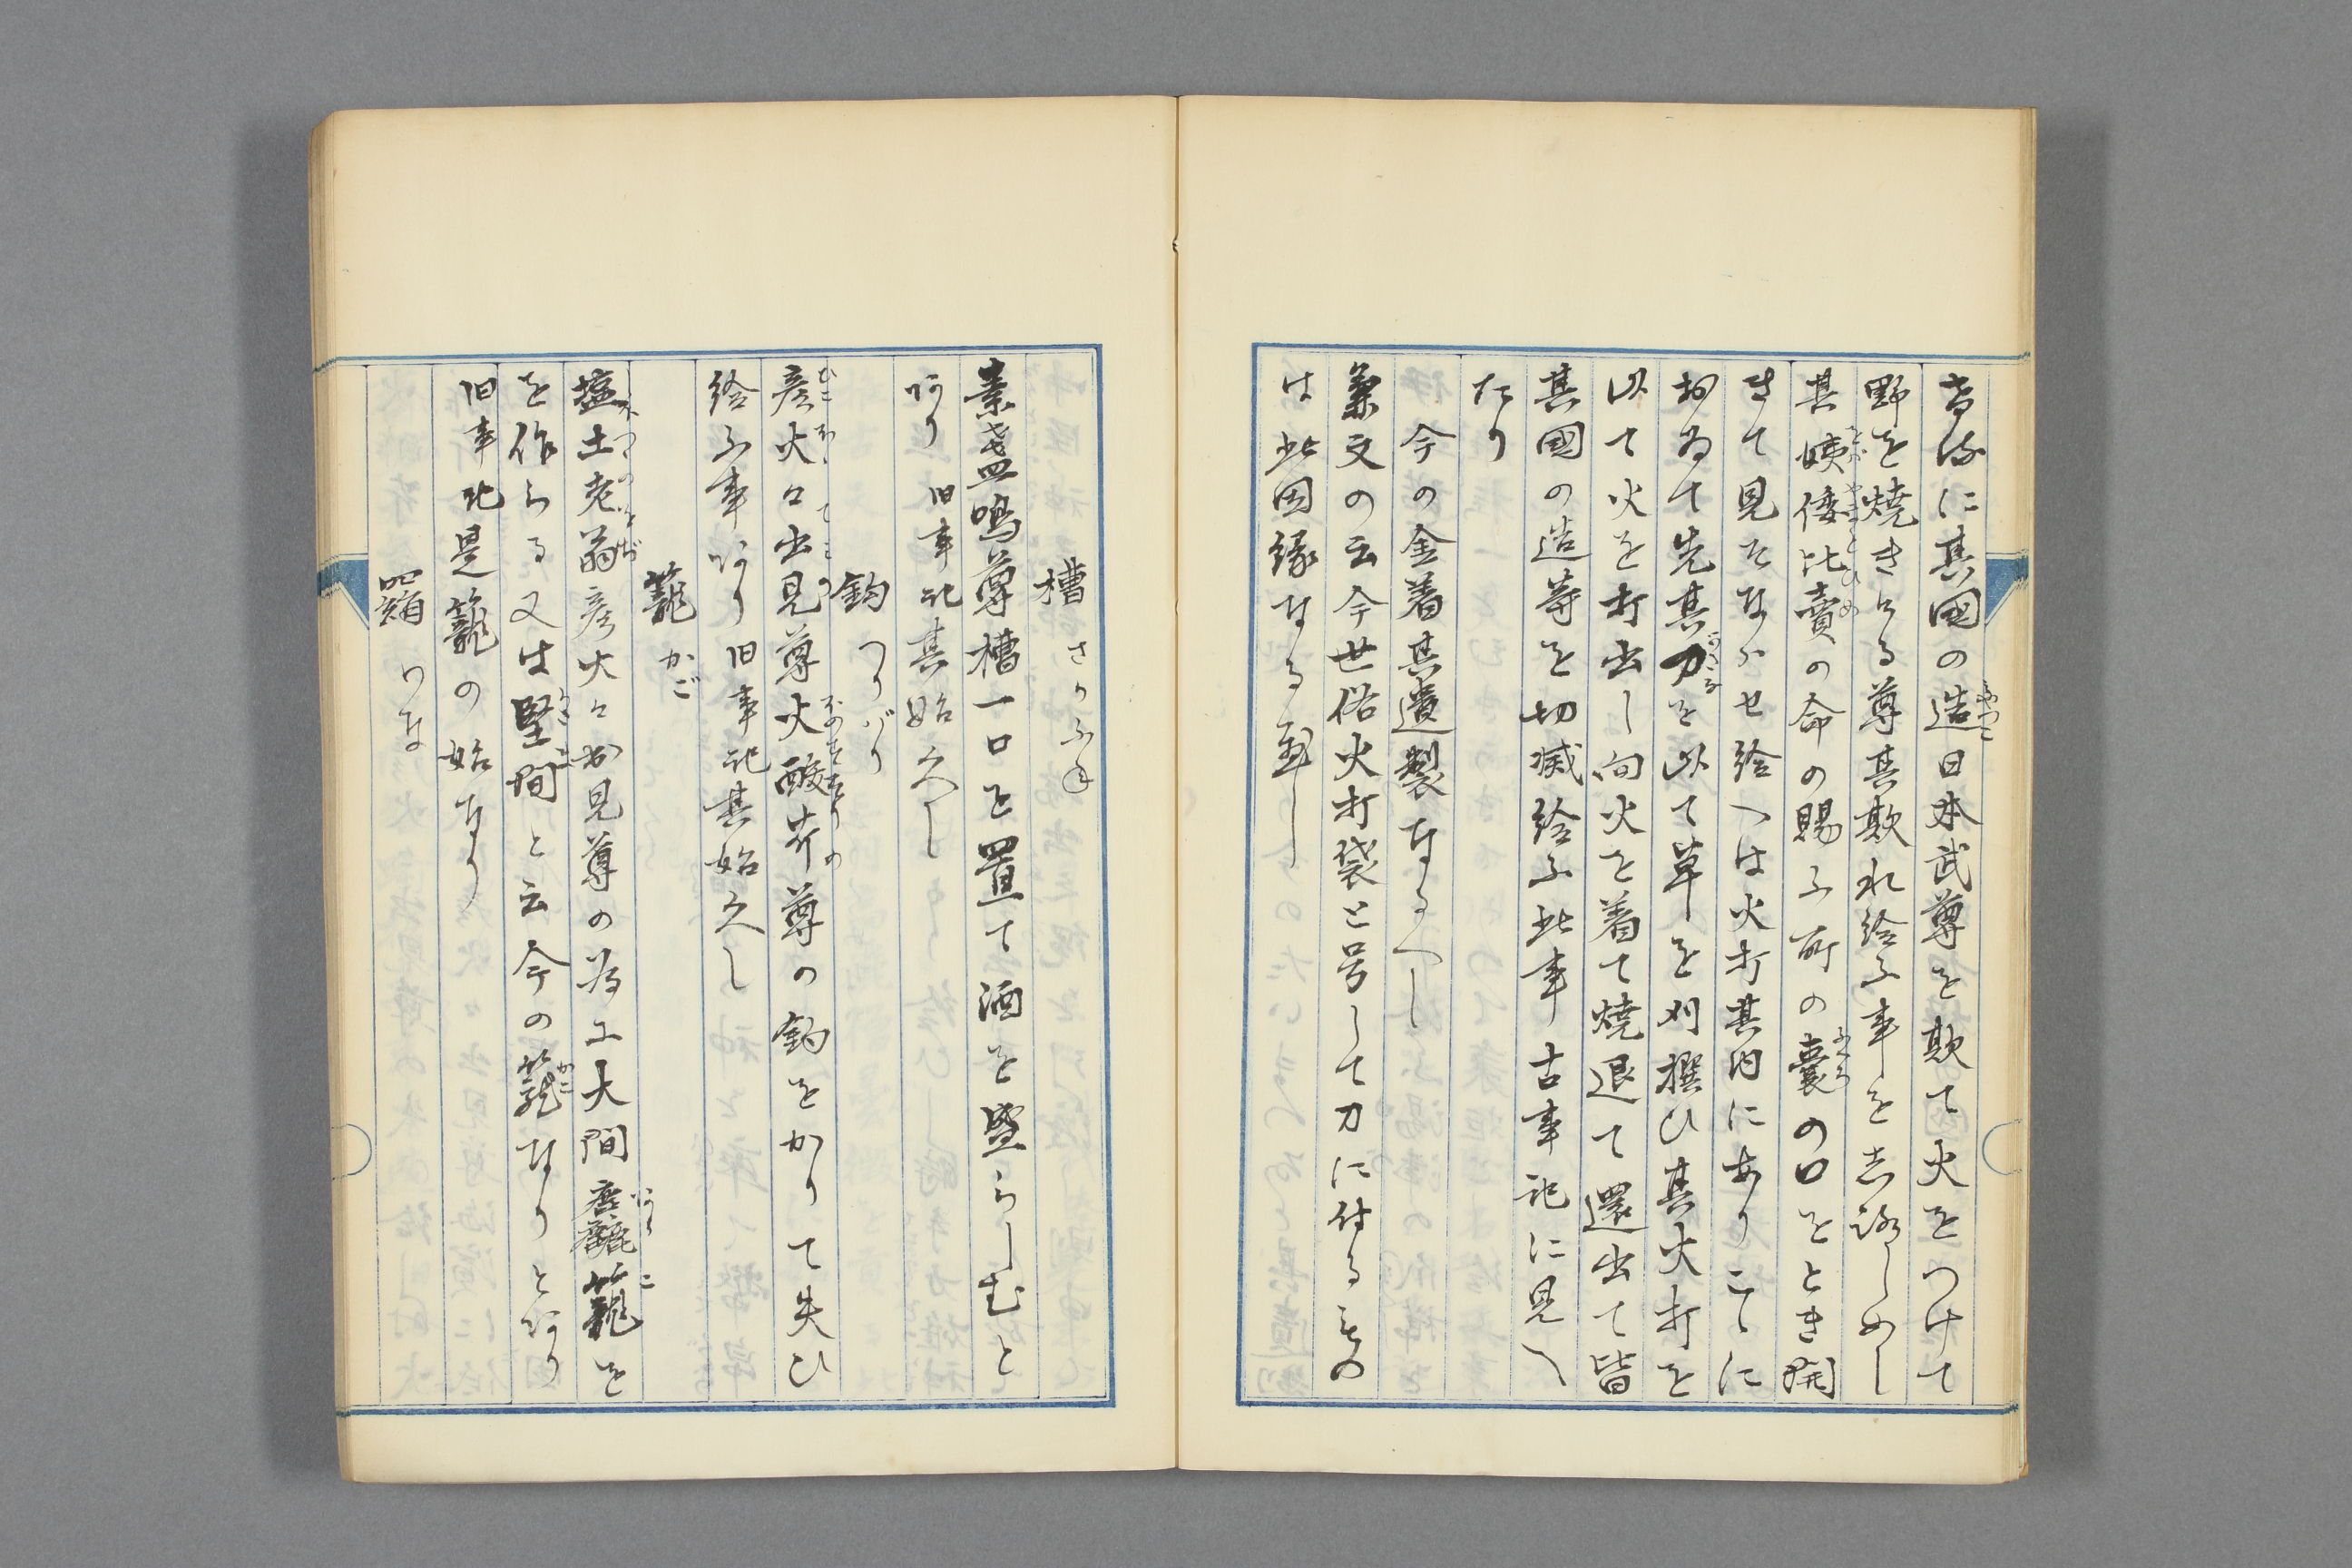 其國の造日本武尊を欺て火をつけて
野を焼きける尊其欺れ給ふ事をしめし
其姨倭比賣の命の賜ふ所の嚢の口をとき開
きて見そなハせ給へは火打其内にありこゝに
おゐて先其刀を以て草を刈撰ひ其火打を
以て火を打出し向火を着て焼退て還出て皆
其國の造等を切滅給ふ此事古事記に見へ
たり
今の金着其遺製なるへし
兼文の云今世俗火打袋と号して刀に付るもの
は此因縁なる歟
槽 さかふね
素盞嗚尊槽一口を置て酒を盛らしむと
あり旧事記其始久し
鈎 つりばり
彦火々出見尊火酸芹尊の鈎をかりて失ひ
給ふ事あり旧事記其始久し
籠 かご
塩土老翁彦火々出見尊の為に大間麁籠を
を作らる又は堅間と云今の籠なりとあり
旧事記是籠の始なり
羂 わな